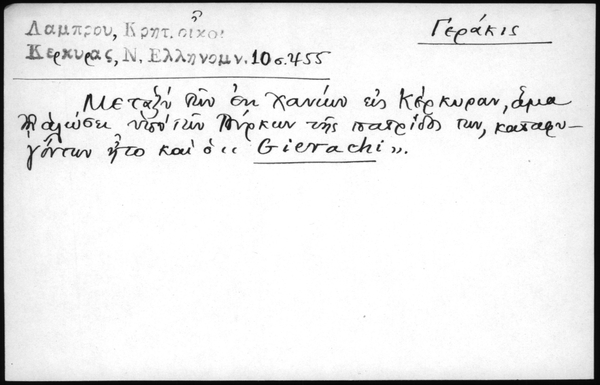 Λαμπρου, Κρητ. οἶκοι
Γεράκις
Κερκυρας, Ν. Ελληνομν. 10 σ. 455
Μεταξύ τῶν ἐκ Χανίων εἰς Κέρκυραν, ἅμα
τῇ ἁλώσει ὑπό τῶν Τούρκων τῆς πατρίδος των, καταφυ-
γόντων ἦτο καί ὁ « Gierachi ».